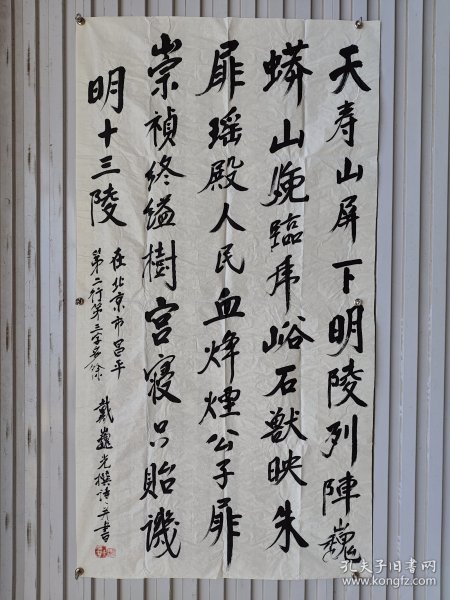 天寿山屏下明陵列陣巍
蟒山晚臨虎峪石獸映朱
扉瑶殿人民血烽煙公子扉
崇禎終縊樹宫寝只貽譏
明十三陵
在北京市昌平
第二行第三字
戴巍光撰詩并書
孔夫子旧书网
www.kongfz.com